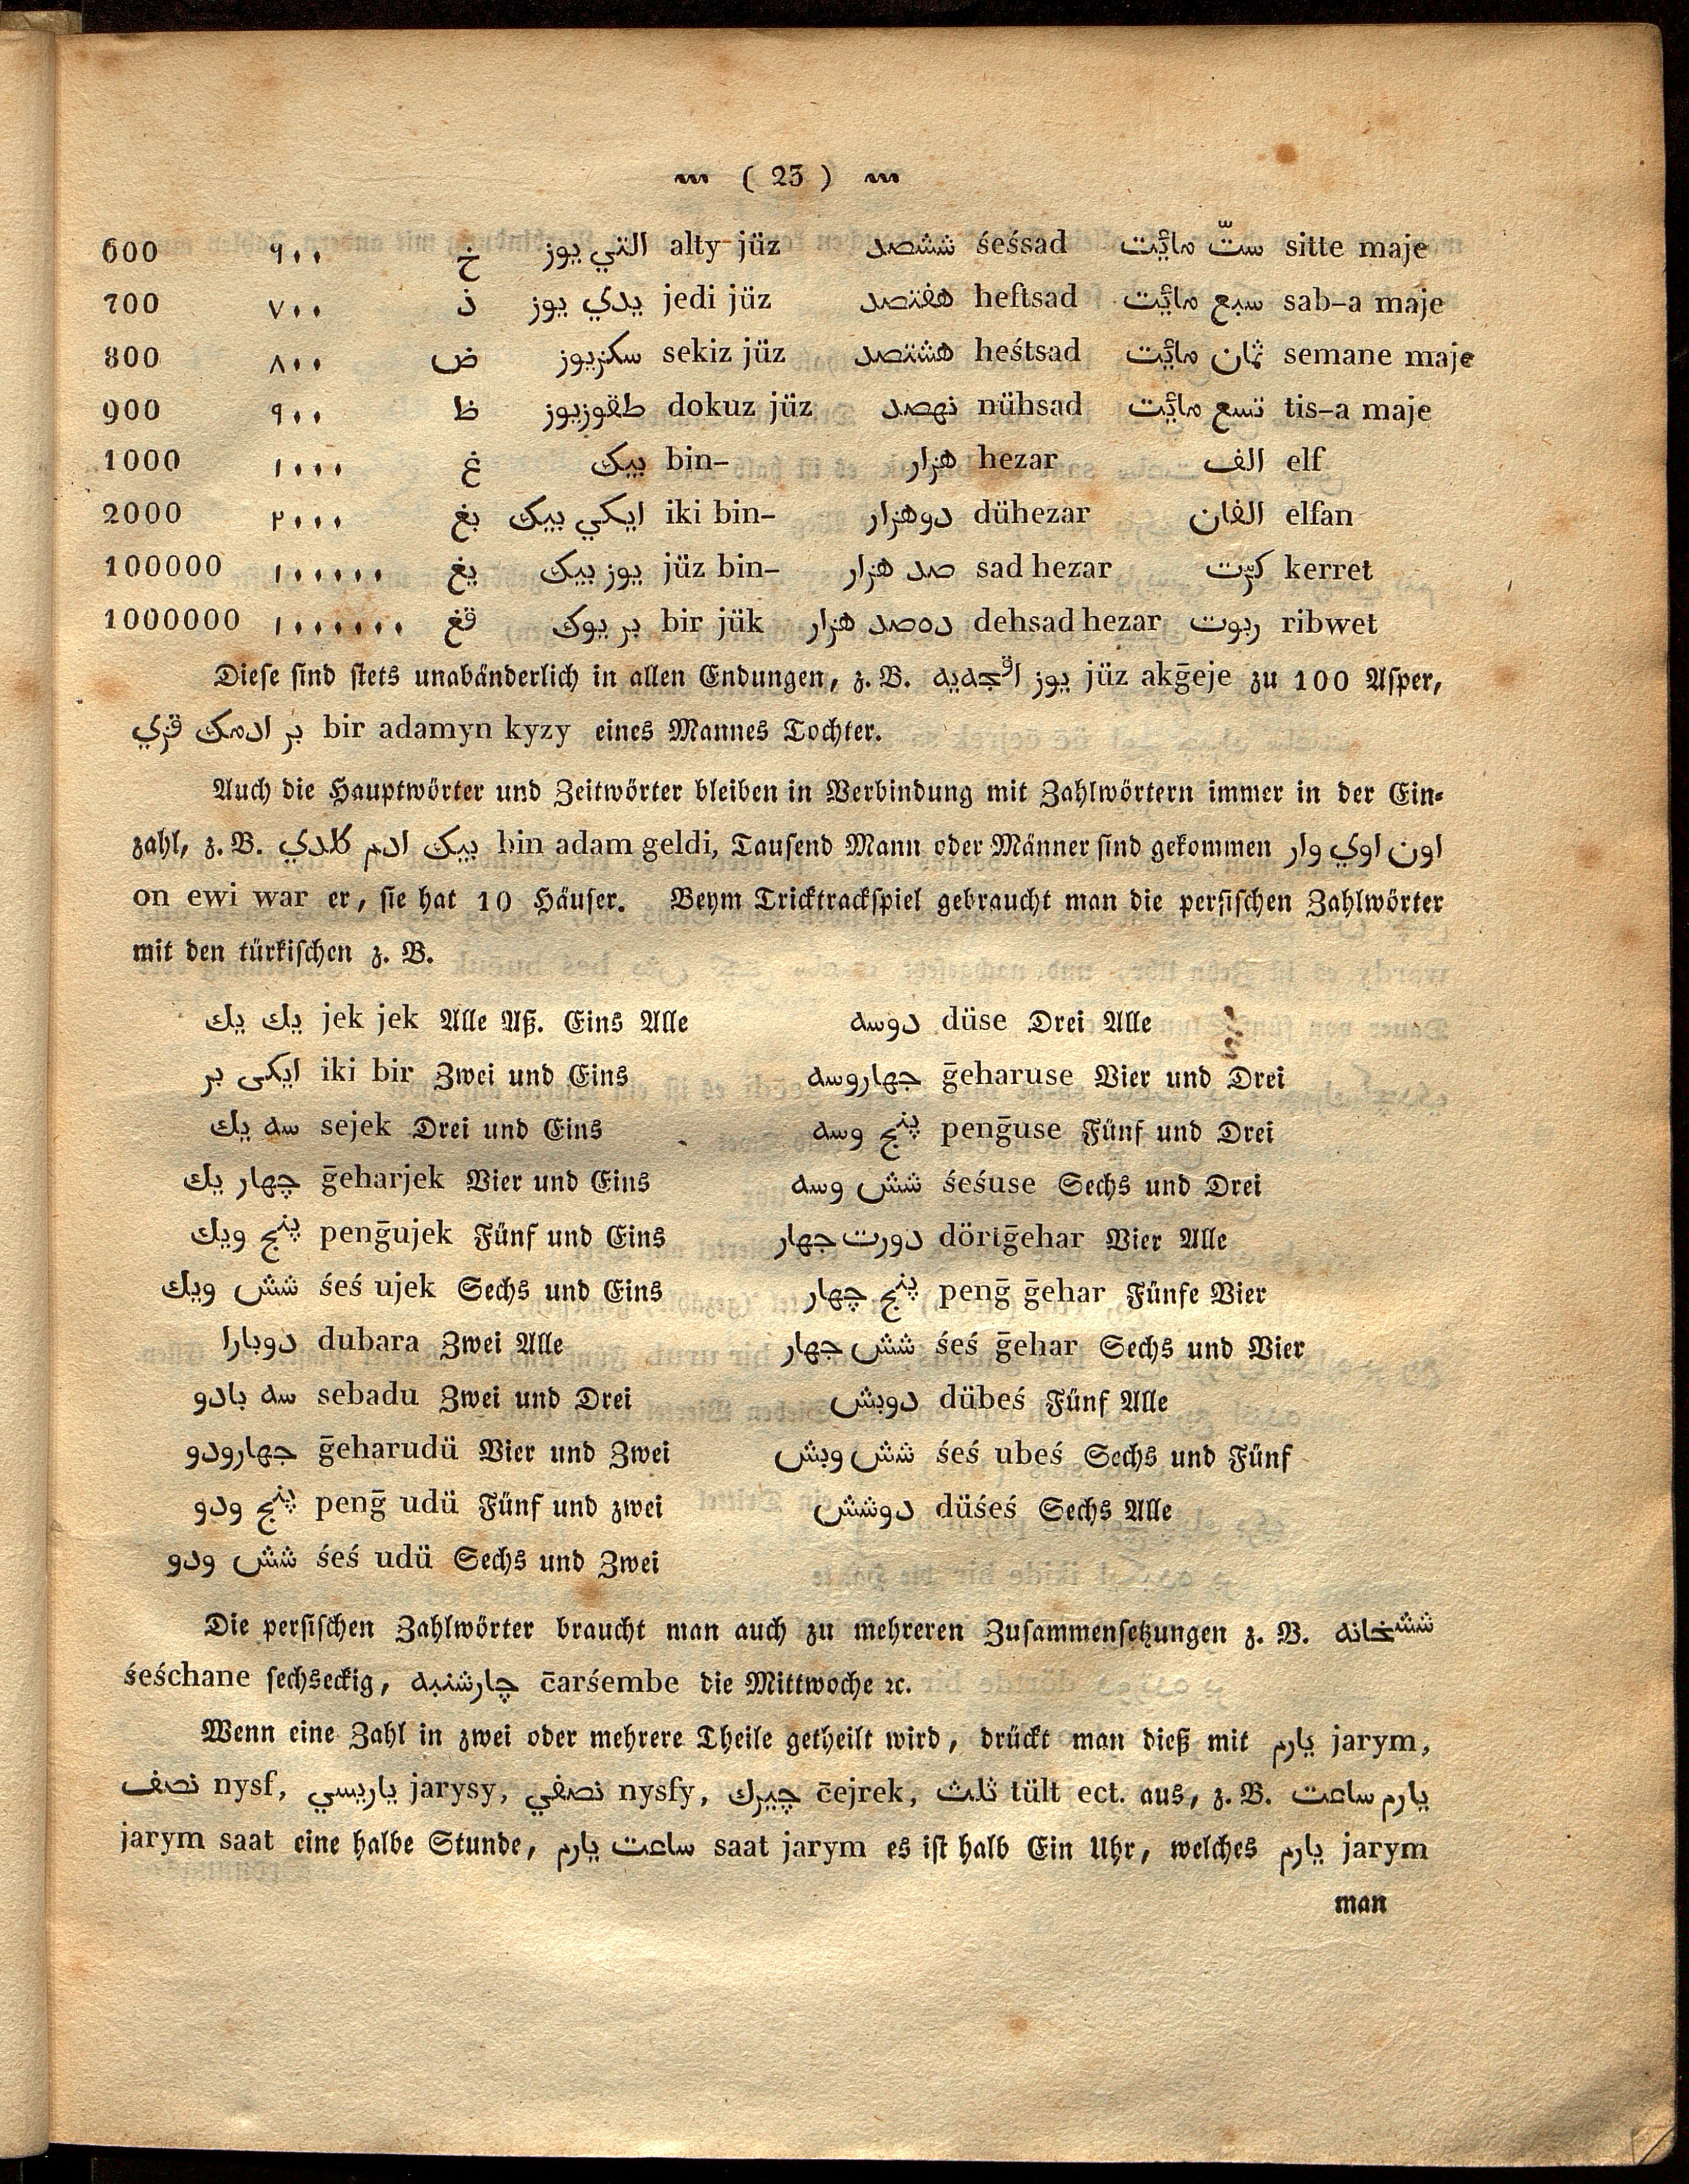 ( 23 )
600 ٩٠٠ خ التي يوز alty jüz ششصد śeśsad ستّ مائيت sitte maje
700 ٧٠٠ ذ يدي يوز jedi jüz هفتصد heftsad سبع مائيت sab-a maje
800 ٨٠٠ ض سكزيوز sekiz jüz هشتصد heśtsad ثمان مائيت semane maje
900 ٩٠٠ ظ طقوزيوز dokuz jüz نهصد nühsad تسع مائيت tis-a maje
1000 ١٠٠٠ غ بيك bin- هزار hezar الف elf
2000 ٢٠٠٠ بغ ايكي بيك iki bin- دوهزار dühezar الفان elfan
100000 ١٠٠٠٠٠ يغ يوز بيك jüz bin- صد هزار sad hezar كرّت kerret
1000000 ١٠٠٠٠٠٠ قغ بر يوك bir jük ده صد هزار dehsad hezar ربوت ribwet
Diese sind stets unabänderlich in allen Endungen, z. B. يوز اقچه يه jüz akḡeje zu 100 Asper,
بر ادمك قزي bir adamyn kyzy eines Mannes Tochter.
Auch die Hauptwörter und Zeitwörter bleiben in Verbindung mit Zahlwörtern immer in der Ein-
zahl, z. B. بيك ادم كلدي bin adam geldi, Tausend Mann oder Männer sind gekommen اون اوي وار
on ewi war er, sie hat 10 Häuser. Beym Tricktrackspiel gebraucht man die persischen Zahlwörter
mit den türkischen z. B.
يك يك jek jek Alle Aß. Eins Alle
ايكى بر iki bir Zwei und Eins
سه يك sejek Drei und Eins
چهار يك ḡeharjek Vier und Eins
پنج ويك penḡujek Fünf und Eins
شش ويك śeś ujek Sechs und Eins
دوبارا dubara Zwei Alle
سه بادو sebadu Zwei und Drei
جهارودو ḡeharudü Vier und Zwei
پنج ودو penḡ udü Fünf und zwei
شش ودو śeś udü Sechs und Zwei
دوسه düse Drei Alle
جهاروسه ḡeharuse Vier und Drei
پنج وسه penḡuse Fünf und Drei
شش وسه śeśuse Sechs und Drei
دورت جهار dörtḡehar Vier Alle
پنج چهار penḡ ḡehar Fünfe Vier
شش جهار śeś ḡehar Sechs und Vier
دوبش dübeś Fünf Alle
شش وبش śeś ubeś Sechs und Fünf
دوشش düśeś Sechs Alle
Die persischen Zahlwörter braucht man auch zu mehreren Zusammensetzungen z. B. ششخانه
śeśchane sechseckig, چارشنبه c̄arśembe die Mittwoche ꝛc.
Wenn eine Zahl in zwei oder mehrere Theile getheilt wird, drückt man dieß mit يارم jarym,
نصف nysf, ياريسي jarysy, نصفي nysfy, چيرك c̄ejrek, ثلث tült ect. aus, z. B. يارم ساعت
jarym saat eine halbe Stunde, ساعت يارم saat jarym es ist halb Ein Uhr, welches يارم jarym
man